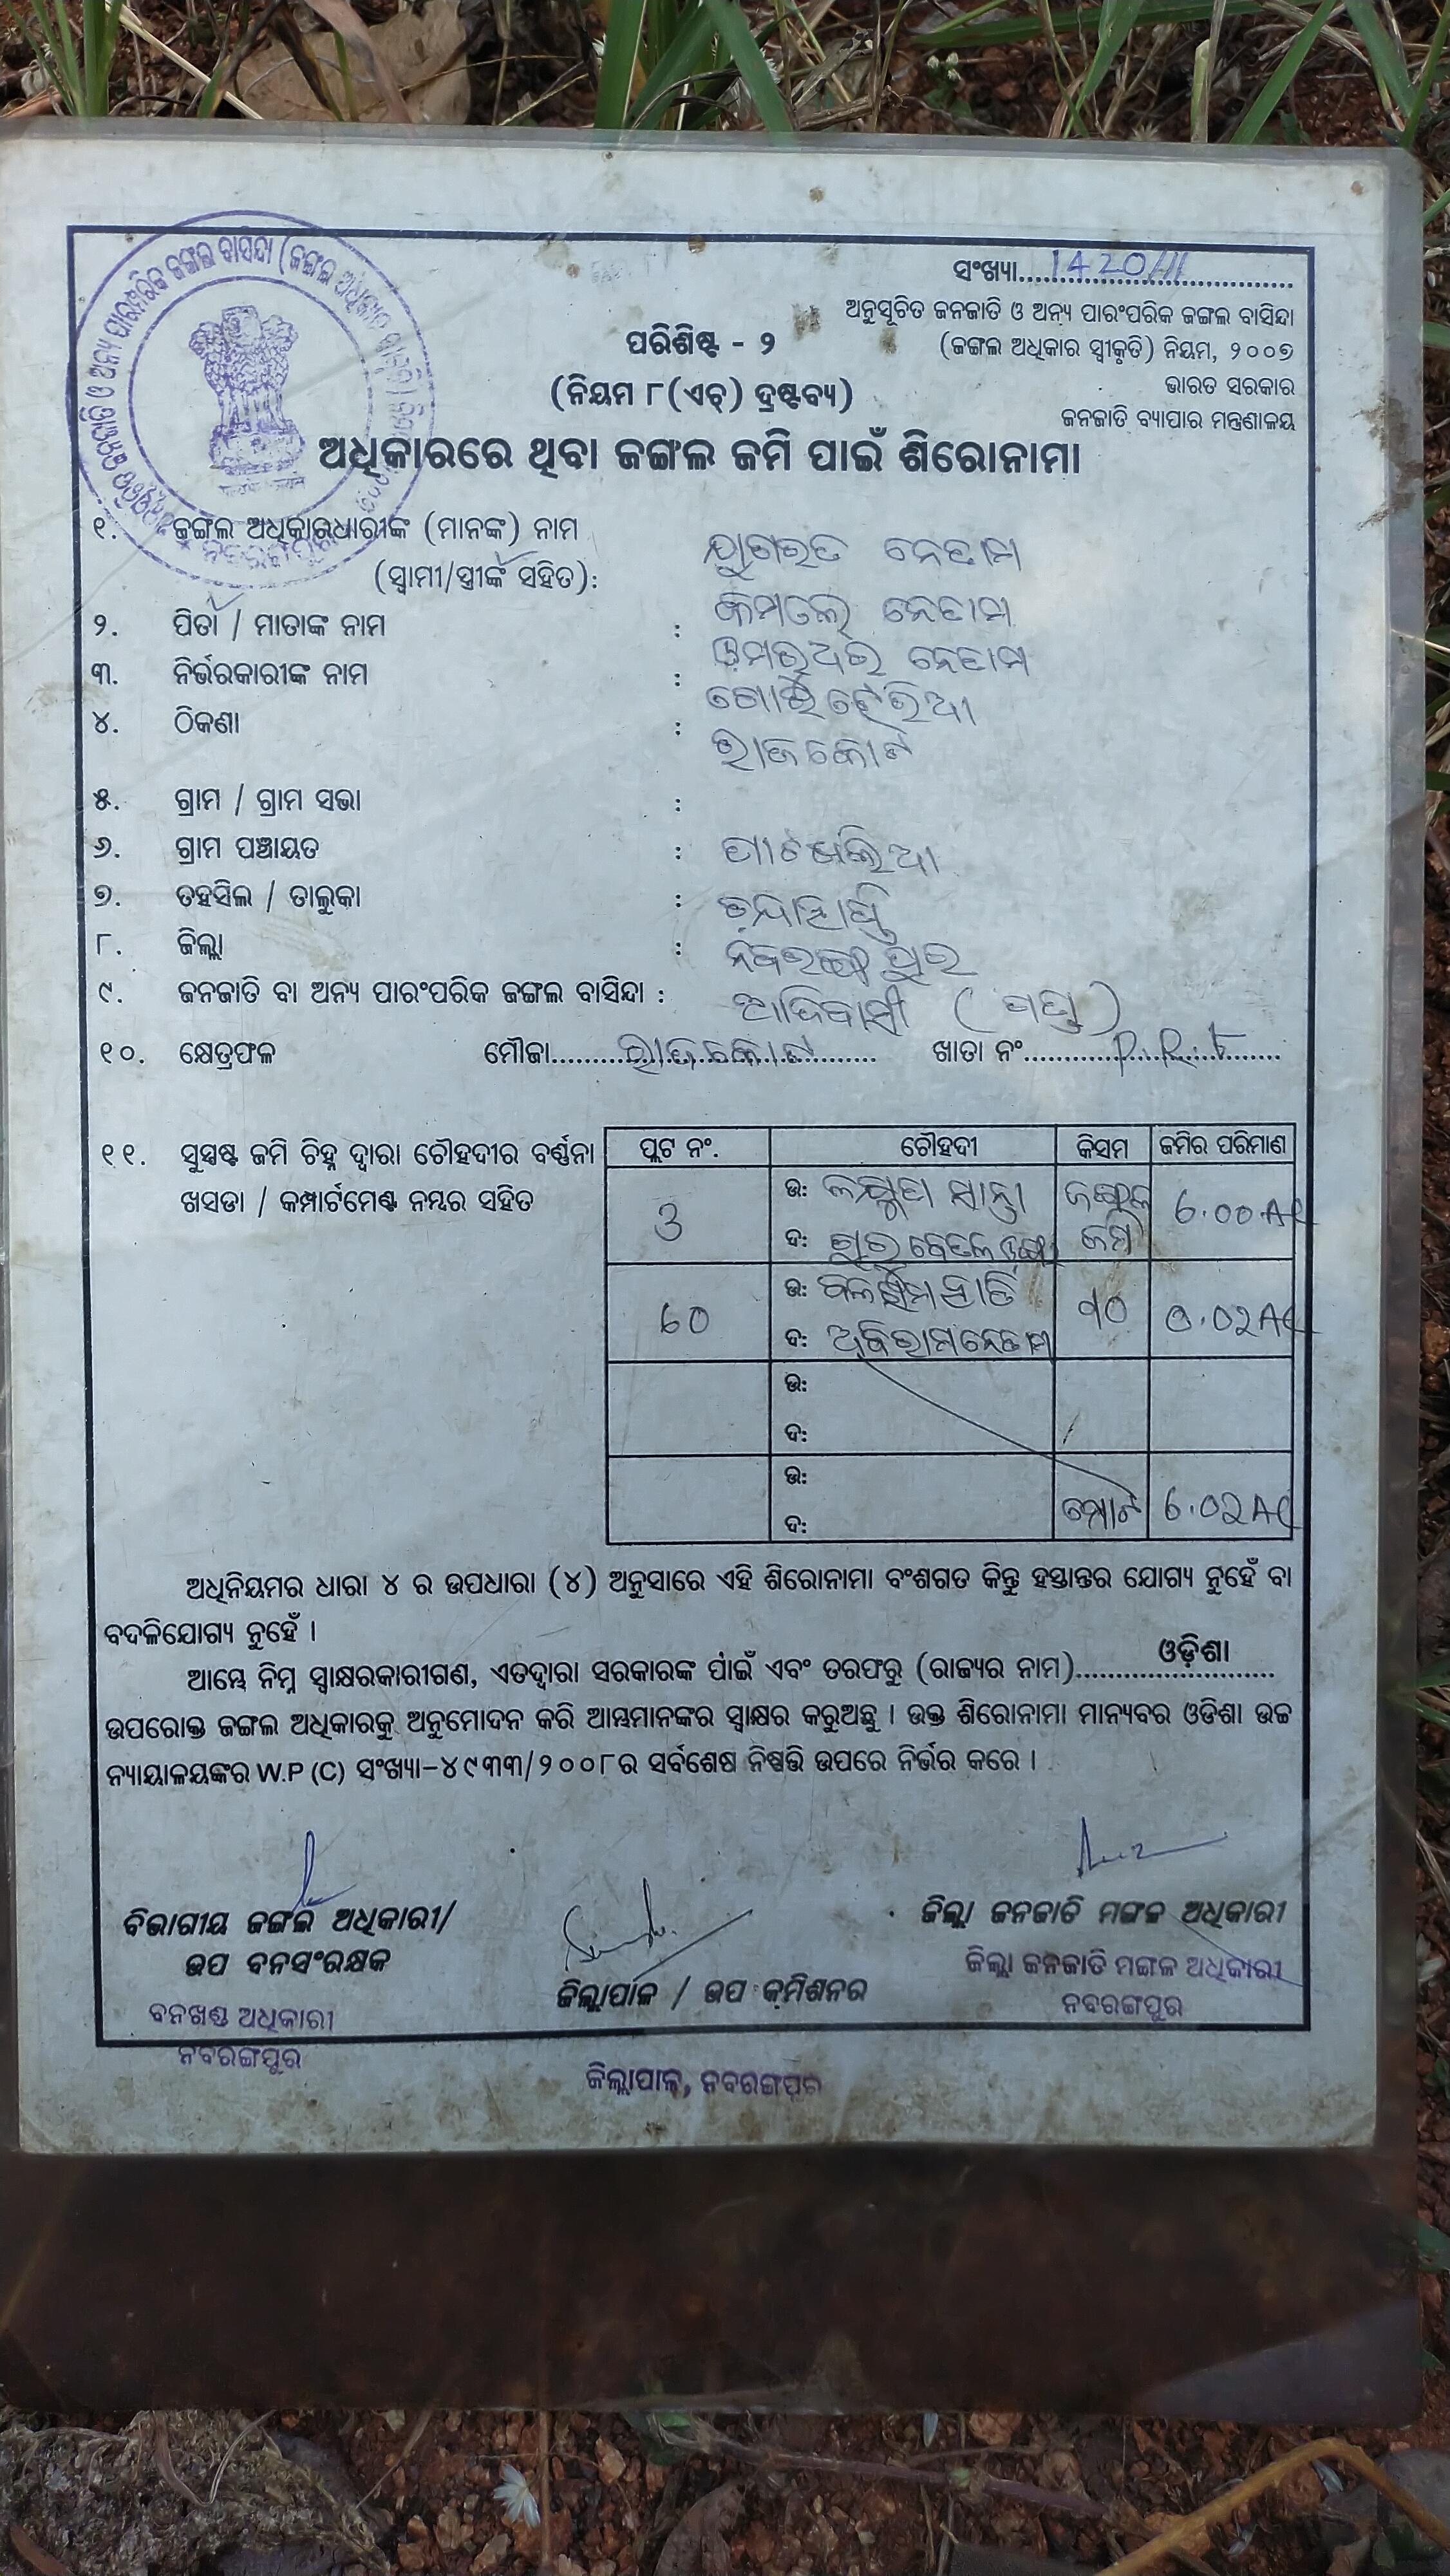 ସଂଖ୍ୟା....1420/11....
ଅନୁସୂଚିତ ଜନଜାତି ଓ ଅନ୍ୟ ପାରଂପରିକ ଜଙ୍ଗଲ ବାସିନ୍ଦା
(ଜଙ୍ଗଲ ଅଧିକାର ସ୍ୱୀକୃତି) ନିୟମ, ୨୦୦୭
ଭାରତ ସରକାର
ଜନଜାତି ବ୍ୟାପାର ମନ୍ତ୍ରଣାଳୟ
ପରିଶିଷ୍ଟ - ୨
(ନିୟମ ୮(ଏଚ୍) ଦ୍ରଷ୍ଟବ୍ୟ)
ଅଧିକାରରେ ଥିବା ଜଙ୍ଗଲ ଜମି ପାଇଁ ଶିରୋନାମା
୧. ଜଙ୍ଗଲ ଅଧିକାରଧାରୀଙ୍କ (ମାନଙ୍କ) ନାମ
(ସ୍ୱାମୀ/ସ୍ତ୍ରୀଙ୍କ ସହିତ):
୨. ପିତା / ମାତାଙ୍କ ନାମ :
୩. ନିର୍ଭରକାରୀଙ୍କ ନାମ :
୪. ଠିକଣା :
ରାଜକୋଟ
୫. ଗ୍ରାମ / ଗ୍ରାମ ସଭା :
୬. ଗ୍ରାମ ପଞ୍ଚାୟତ :
୭. ତହସିଲ / ତାଲୁକା : ଚନ୍ଦାହାଣ୍ଡି
୮. ଜିଲ୍ଲା : ନବରଙ୍ଗପୁର
୯. ଜନଜାତି ବା ଅନ୍ୟ ପାରଂପରିକ ଜଙ୍ଗଲ ବାସିନ୍ଦା : ଆଦିବାସୀ (ଗଣ୍ଡ)
୧୦. କ୍ଷେତ୍ରଫଳ ମୌଜା....ରାଜକୋଟ.... ଖାତା ନଂ....P.R.F....
୧୧. ସୁସ୍ପଷ୍ଟ ଜମି ଚିହ୍ନ ଦ୍ୱାରା ଚୌହଦୀର ବର୍ଣ୍ଣନା
ଖସଡା / କମ୍ପାର୍ଟମେଣ୍ଟ ନମ୍ବର ସହିତ
ପ୍ଲଟ ନଂ. ଚୌହଦୀ କିସମ ଜମିର ପରିମାଣ
3 ଉ: ଜଙ୍ଗଲ 6.00 AC
ଦ: ଜମି
60 ଉ: ୩୦ 0.02 AC
ଦ: ଅବିରାମ ନେତାମ
ଉ:
ଦ:
ଉ:
ଦ: ମୋଟ 6.02 AC
ଅଧିନିୟମର ଧାରା ୪ ର ଉପଧାରା (୪) ଅନୁସାରେ ଏହି ଶିରୋନାମା ବଂଶଗତ କିନ୍ତୁ ହସ୍ତାନ୍ତର ଯୋଗ୍ୟ ନୁହେଁ ବା
ବଦଳିଯୋଗ୍ୟ ନୁହେଁ ।
ଆମ୍ଭେ ନିମ୍ନ ସ୍ୱାକ୍ଷରକାରୀଗଣ, ଏତଦ୍ୱାରା ସରକାରଙ୍କ ପାଇଁ ଏବଂ ତରଫରୁ (ରାଜ୍ୟର ନାମ)....ଓଡ଼ିଶା....
ଉପରୋକ୍ତ ଜଙ୍ଗଲ ଅଧିକାରକୁ ଅନୁମୋଦନ କରି ଆମ୍ଭମାନଙ୍କର ସ୍ୱାକ୍ଷର କରୁଅଛୁ । ଉକ୍ତ ଶିରୋନାମା ମାନ୍ୟବର ଓଡିଶା ଉଚ୍ଚ
ନ୍ୟାୟାଳୟଙ୍କର W.P (C) ସଂଖ୍ୟା-୪୯୩୩/୨୦୦୮ର ସର୍ବଶେଷ ନିଷ୍ପତ୍ତି ଉପରେ ନିର୍ଭର କରେ ।
ବିଭାଗୀୟ ଜଙ୍ଗଲ ଅଧିକାରୀ/
ଉପ ବନସଂରକ୍ଷକ
ବନଖଣ୍ଡ ଅଧିକାରୀ
ନବରଙ୍ଗପୁର
ଜିଲ୍ଲାପାଳ / ଉପ କମିଶନର
ଜିଲ୍ଲାପାଳ, ନବରଙ୍ଗପୁର
ଜିଲ୍ଲା ଜନଜାତି ମଙ୍ଗଳ ଅଧିକାରୀ
ଜିଲ୍ଲା ଜନଜାତି ମଙ୍ଗଳ ଅଧିକାରୀ
ନବରଙ୍ଗପୁର